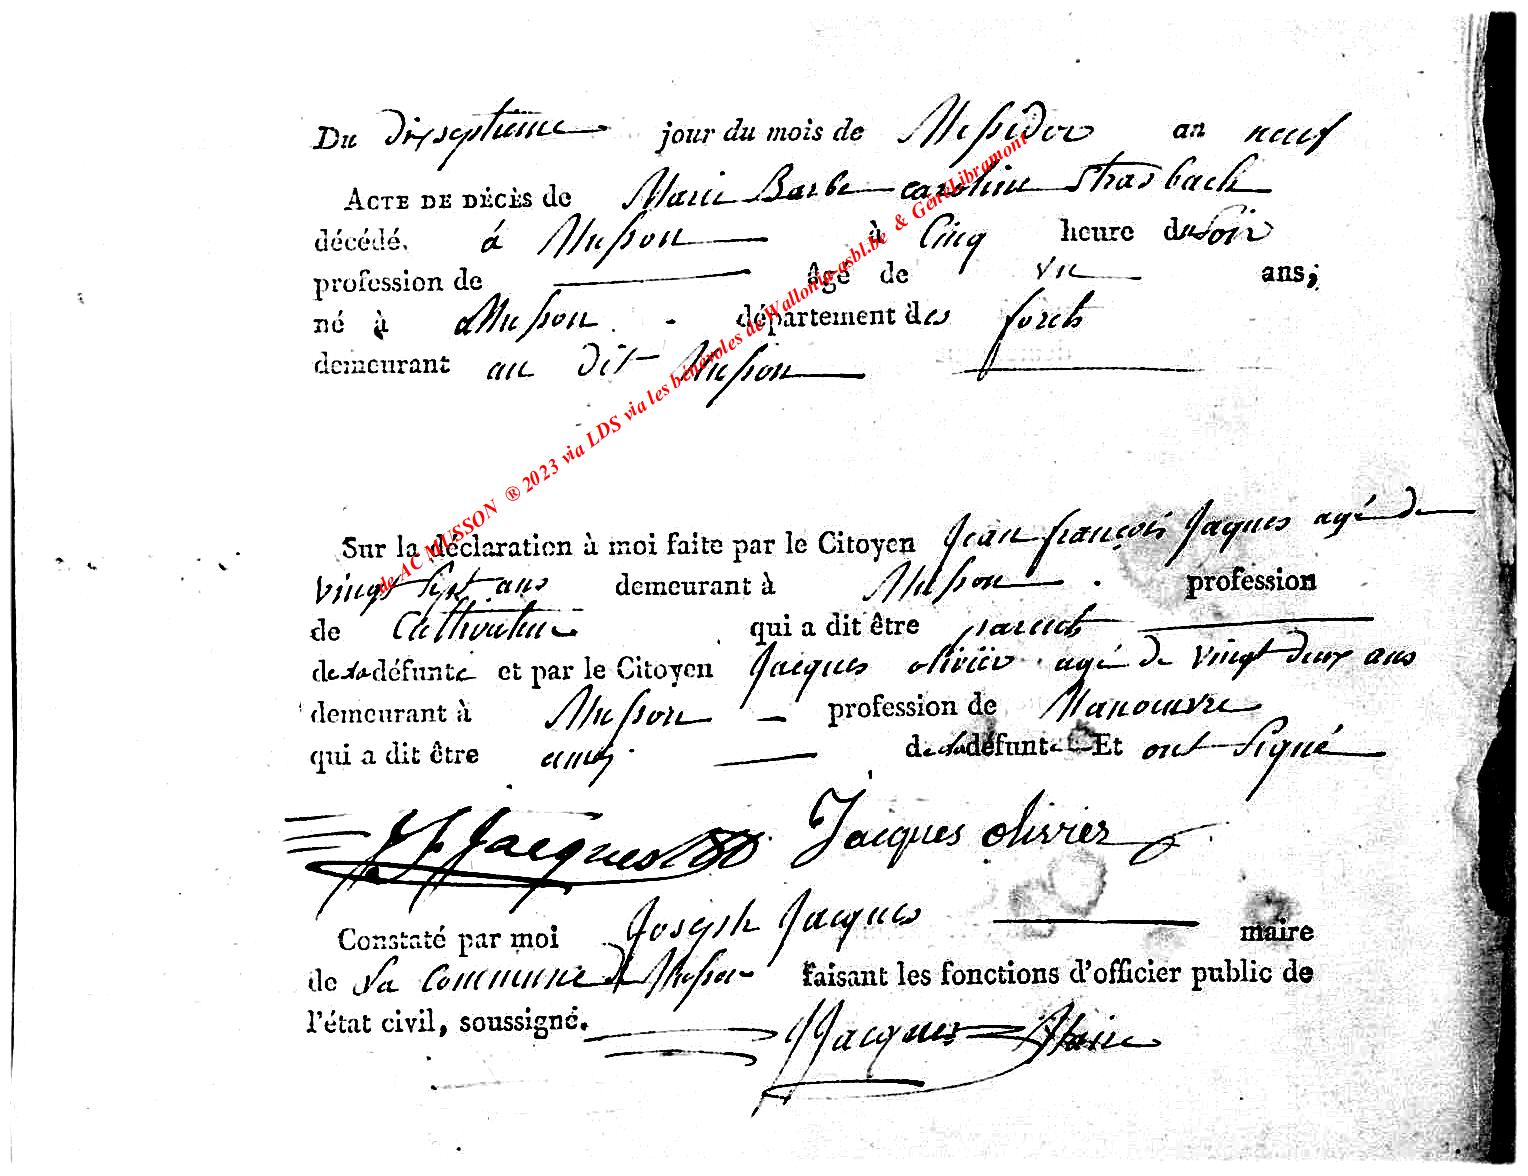 Du dixseptieme jour du mois de Messidor an neuf
ACTE DE DÉCÈS de Marie Barbe caroline Strasbach
décédé. á Musson à Cinq heure du soir
profession de âgé de un ans;
né à Musson. département des forets
demeurant au dit Musson
de AC MUSSON ® 2023 via LDS via les bénévoles de Wallonia-asbl.be & GeneLibramont
Sur la déclaration à moi faite par le Citoyen Jean françois Jaques agé de
vingt sept ans demeurant à Musson. profession
de Cultivateur qui a dit être parent
de la défunte et par le Citoyen Jacques olivier agé de vingt deux ans
demeurant à Musson profession de Manoeuvre
qui a dit être amy de la défunte Et ont signé
J f Jacques Jacques olivier
Constaté par moi Joseph Jacques maire
de La Commune de Musson faisant les fonctions d'officier public de
l'état civil, soussigné. J Jacques Maire